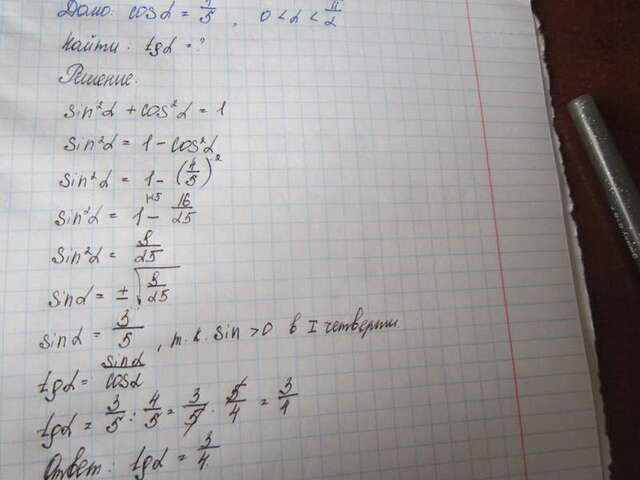 Дано: cos α = 4/5, 0 < α < π/2
Найти: tg α = ?
Решение:
sin²α + cos²α = 1
sin²α = 1 - cos²α
sin²α = 1 - (4/5)²
sin²α = 1\25 - 16/25
sin²α = 9/25
sin α = ± √9/25
sin α = 3/5, т.к. sin > 0 в I четверти.
tg α = sin α/cos α
tg α = 3/5 : 4/5 = 3/5 · 5/4 = 3/4
Ответ: tg α = 3/4